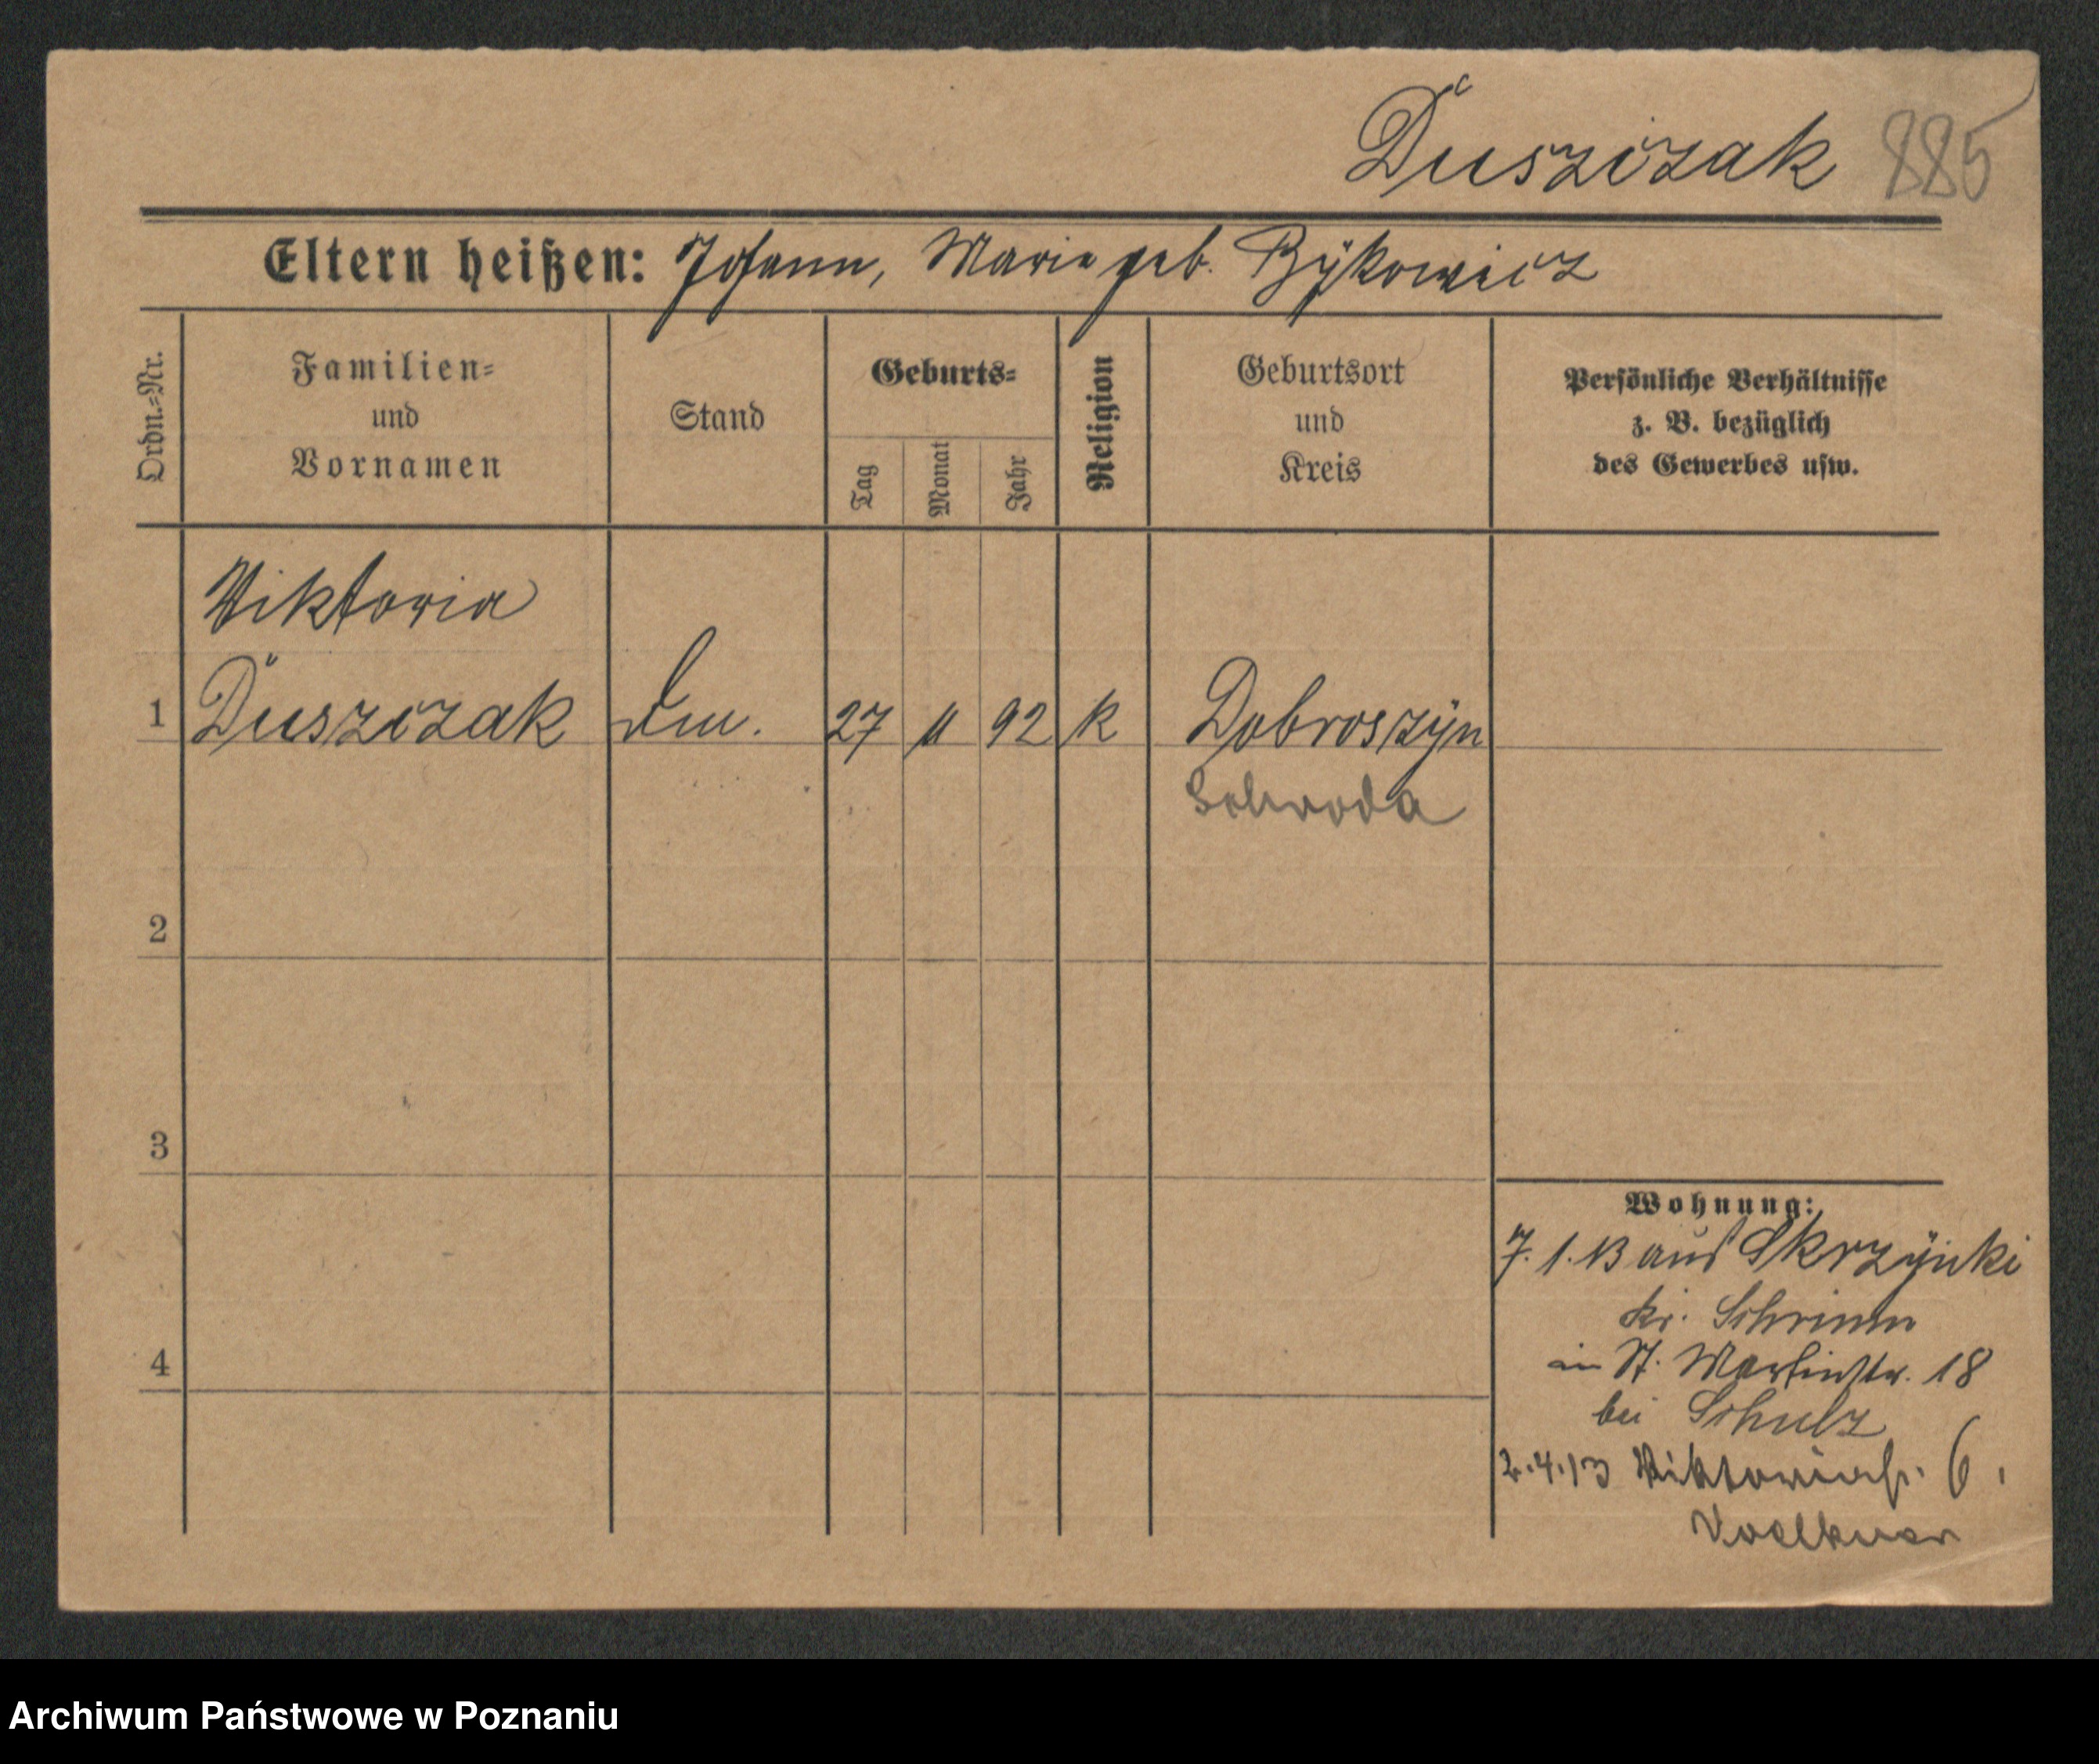 Duszczak 885
Eltern heißen: Johann, Marie geb. Bÿkowicz
Ordn.=Nr.
Familien=
und
Vornamen
Stand
Geburts=
Tag
Monat
Jahr
Religion
Geburtsort
und
Kreis
Persönliche Verhältnisse
z. B. bezüglich
des Gewerbes usw.
Viktoria
1 Duszczak 27 11 92 k Dobroszÿn
Schroda
2
3
4
Wohnung:
7.1.13 aus Skrzÿnki
Kr. Schrimm
in St. Martinstr. 18
bei Schulz
2.4.13 Viktoriastr. 6.
Voelkner
Archiwum Państwowe w Poznaniu